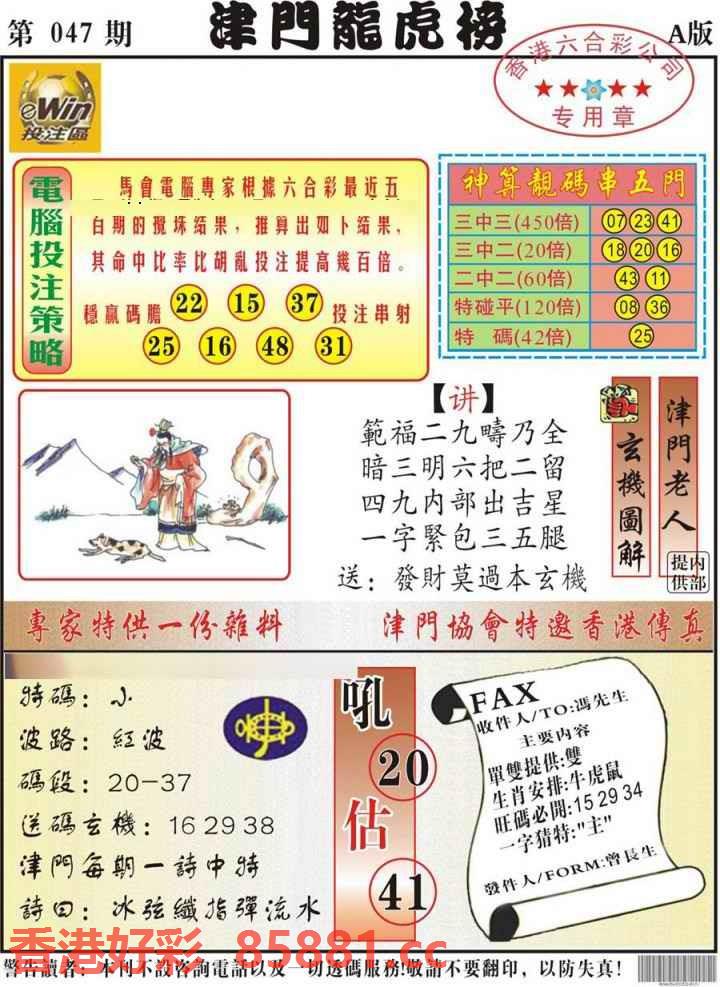 第 047 期
津門龍虎榜
A版
香港六合彩公司
★★★★
专用章
eWin
投注區
電腦投注策略
馬會電腦專家根據六合彩最近五
百期的攪珠结果，推算出如卜结果，
其命中比率比胡亂投注提高幾百倍。
穩贏碼膽 22 15 37 投注串射
25 16 48 31
神算靚碼串五門
三中三(450倍) 07 23 41
三中二(20倍) 18 20 16
二中二(60倍) 43 11
特碰平(120倍) 08 36
特 碼(42倍) 25
【讲】
範福二九疇乃全
暗三明六把二留
四九内部出吉星
一字緊包三五腿
送：發財莫過本玄機
玄機圖解
津門老人
内部提供
專家特供一份雜料
津門協會特邀香港傳真
特碼：小
波路：紅波
碼段：20-37
送碼玄機：16 29 38
津門每期一詩中特
詩曰：冰弦纖指彈流水
吼
20
估
41
FAX
收件人/TO:馮先生
主要内容
單雙提供:雙
生肖安排:牛虎鼠
旺碼必開:15 29 34
一字猜特:"主"
發件人/FORM:曾長生
香港好彩 85881.cc
警告讀者：本刊不設咨詢電話以及一切透碼服務!敬請不要翻印，以防失真!